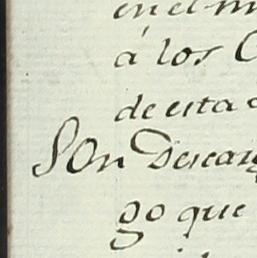 en el m
á los C
de esta c
Son Descar
go que